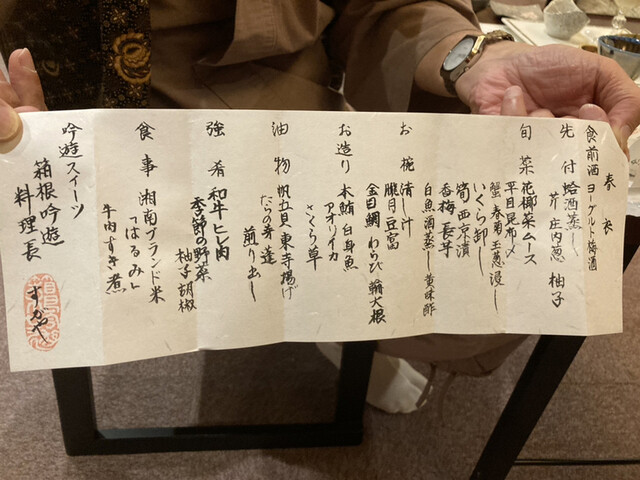 春衣
食前酒 ヨーグルト梅酒
先付 蛤酒蒸し
芹 庄内葱 柚子
旬菜 花椰菜ムース
平目昆布〆
蟹 春菊 玉葱浸し
いくら卸し
筍西京漬
香梅長芋
白魚酒蒸し 黄味酢
お椀 清し汁
朧月豆富
金目鯛 わらび 輪大根
お造り 本鮪 白身魚
アオリイカ
さくら草
油物 帆立貝東寺揚げ
たらの芽 蓬
煎り出し
強肴 和牛ヒレ肉
季節の野菜
柚子胡椒
食事 湘南ブランド米
「はるみ」
牛肉すき煮
吟遊スイーツ
箱根吟遊
料理長
すがや